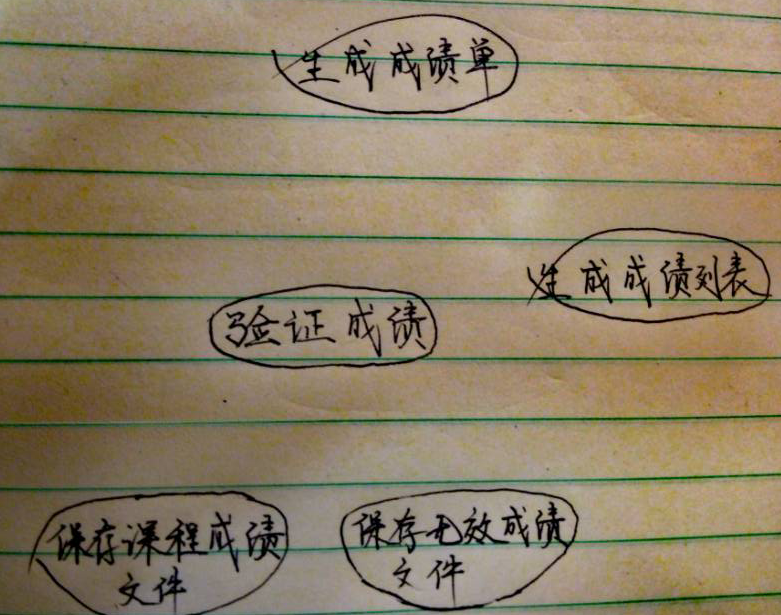 生成成绩单
生成成绩列表
验证成绩
保存课程成绩
文件
保存无效成绩
文件